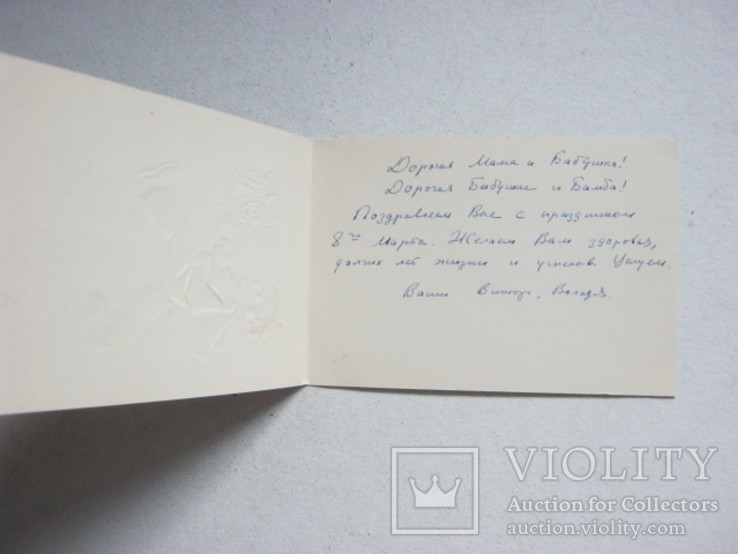 Дорогая Мама и Бабушка!
Дорогая Бабушка и Бамба!
Поздравляем Вас с праздником
8ое Марта. Желаем Вам здоровья,
долгих лет жизни и успехов. Целуем.
Ваши Виктор, Володя.
VIOLITY
Auction for Collectors
auction.violity.com